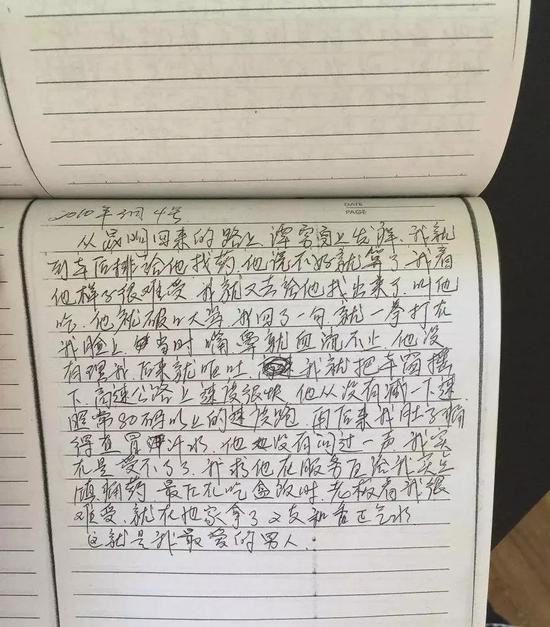 2010年3月4号
DATE
PAGE
从 回来的路上 浑 身上发痒，我就
到车后排给他找药，他说不好就算了 我看
他样子很难受 我就又去给他找出来了 叫他
吃，他就破口大骂 我回了一句 就一拳打在
我脸上 当时嘴、鼻就血流不止 他没
有理我，后来就呕吐， 我就把车窗摇
下 高速公路上速度很快 他从没有减一下速
照常80码以上的速度跑，再后来我肚子痛
得直冒汗水，他也没有问过一声 我实
在是受不了了 我求他在服务区给我买点
镇痛药 最后在吃盒饭时 老板看我很
难受，就在他家拿了 和香正气水
这就是我最爱的男人．